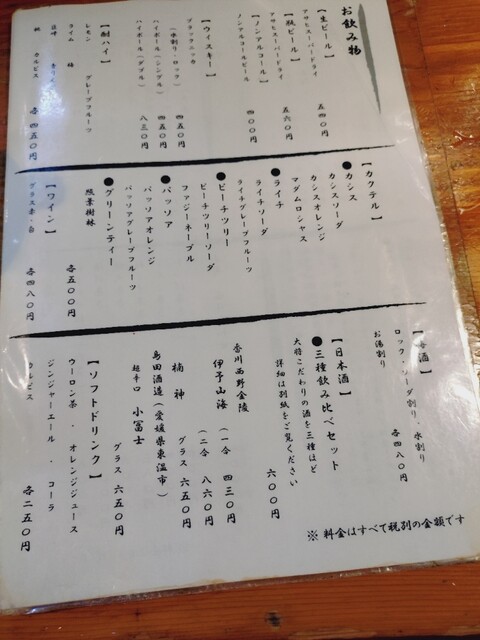 お飲み物
【生ビール】
アサヒスーパードライ 五四〇円
【瓶ビール】
アサヒスーパードライ 五六〇円
【ノンアルコール】
ノンアルコールビール 四〇〇円
【ウイスキー】
ブラックニッカ
（水割り・ロック） 四五〇円
ハイボール（シングル） 四五〇円
ハイボール（ダブル） 八三〇円
【酎ハイ】
レモン グレープフルーツ
ライム 梅
カルピス
各四五〇円
【カクテル】
●カシス
カシスソーダ
カシスオレンジ
マダムロシャス
●ライチ
ライチソーダ
ライチグレープフルーツ
●ピーチツリー
ピーチツリーソーダ
ファジーネーブル
●パッソア
パッソアオレンジ
パッソアグレープフルーツ
●グリーンティー
照葉樹林
各五〇〇円
【ワイン】
グラス赤・白 各四八〇円
【梅酒】
ロック・ソーダ割り・水割り
お湯割り 各四八〇円
【日本酒】
●三種飲み比べセット
大将こだわりの酒を三種ほど
詳細は別紙をご覧ください
六〇〇円
香川西野金陵
伊予山海 （一合） 四三〇円
（二合） 八六〇円
楠神 グラス 六五〇円
島田酒造（愛媛県東温市）
超辛口 小冨士 グラス 六五〇円
【ソフトドリンク】
ウーロン茶・オレンジジュース
ジンジャーエール コーラ
カルピス 各二五〇円
※料金はすべて税別の金額です